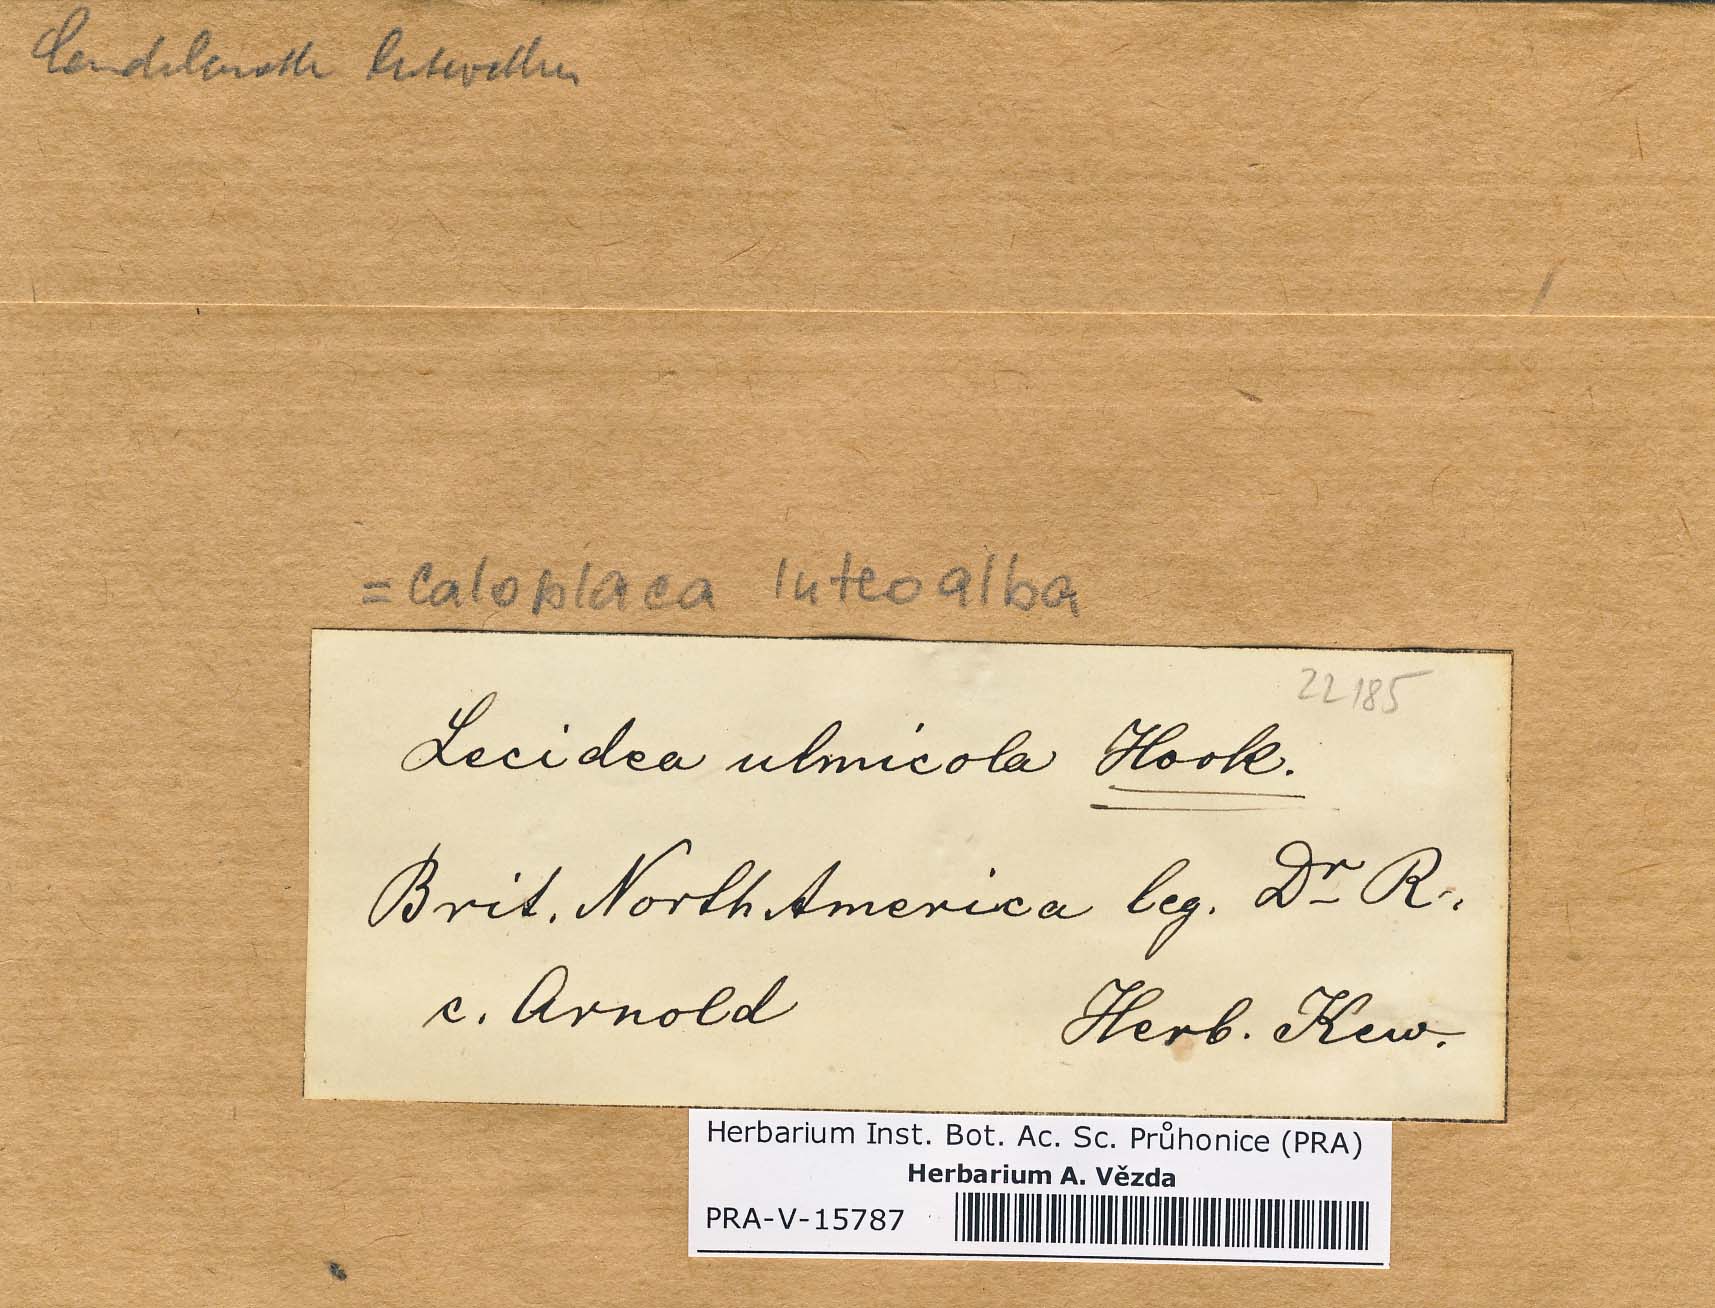 = Caloplaca luteoalba
22185
Lecidea ulmicola Hook.
Brit. North America leg. Dr R..
c. Arnold Herb. Kew.
Herbarium Inst. Bot. Ac. Sc. Průhonice (PRA)
Herbarium A. Vězda
PRA-V-15787